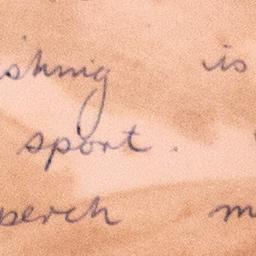 ishing is
sport.
perch m